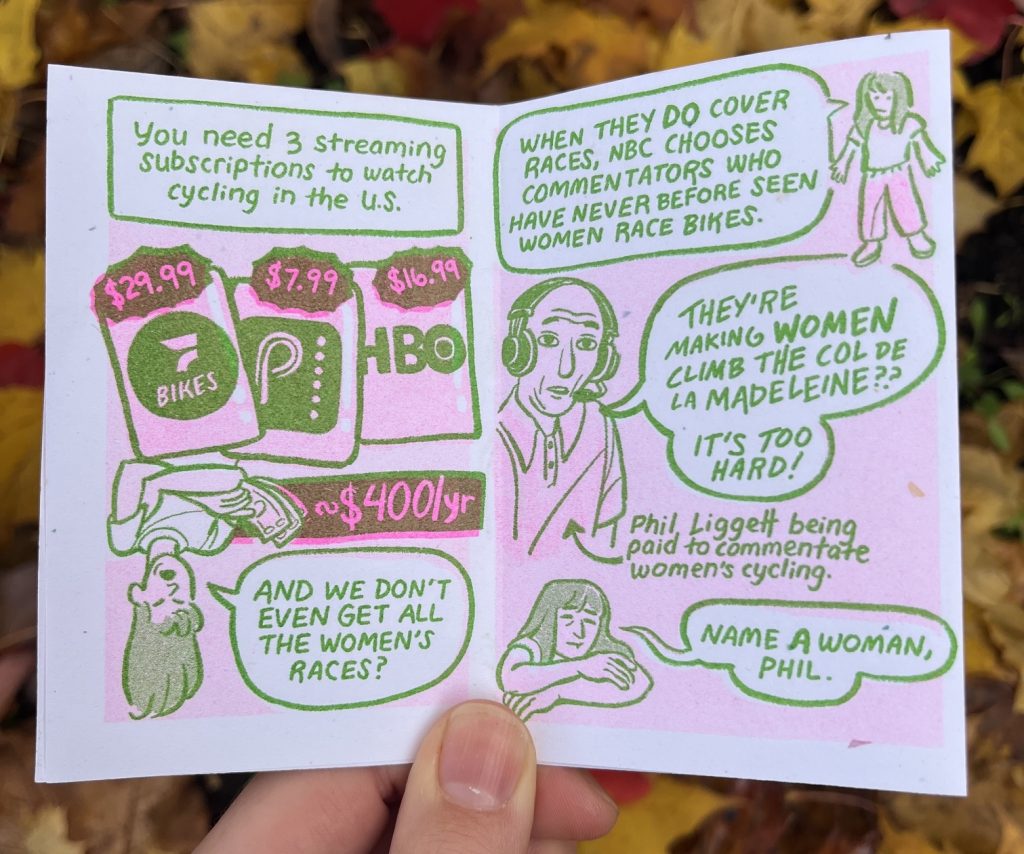 You need 3 streaming
subscriptions to watch
cycling in the U.S.
$29.99
$7.99
$16.99
BIKES
P
HBO
~$400/yr
AND WE DON'T
EVEN GET ALL
THE WOMEN'S
RACES?
WHEN THEY DO COVER
RACES, NBC CHOOSES
COMMENTATORS WHO
HAVE NEVER BEFORE SEEN
WOMEN RACE BIKES.
THEY'RE
MAKING WOMEN
CLIMB THE COL DE
LA MADELEINE??
IT'S TOO
HARD!
Phil Liggett being
paid to commentate
women's cycling.
NAME A WOMAN,
PHIL.